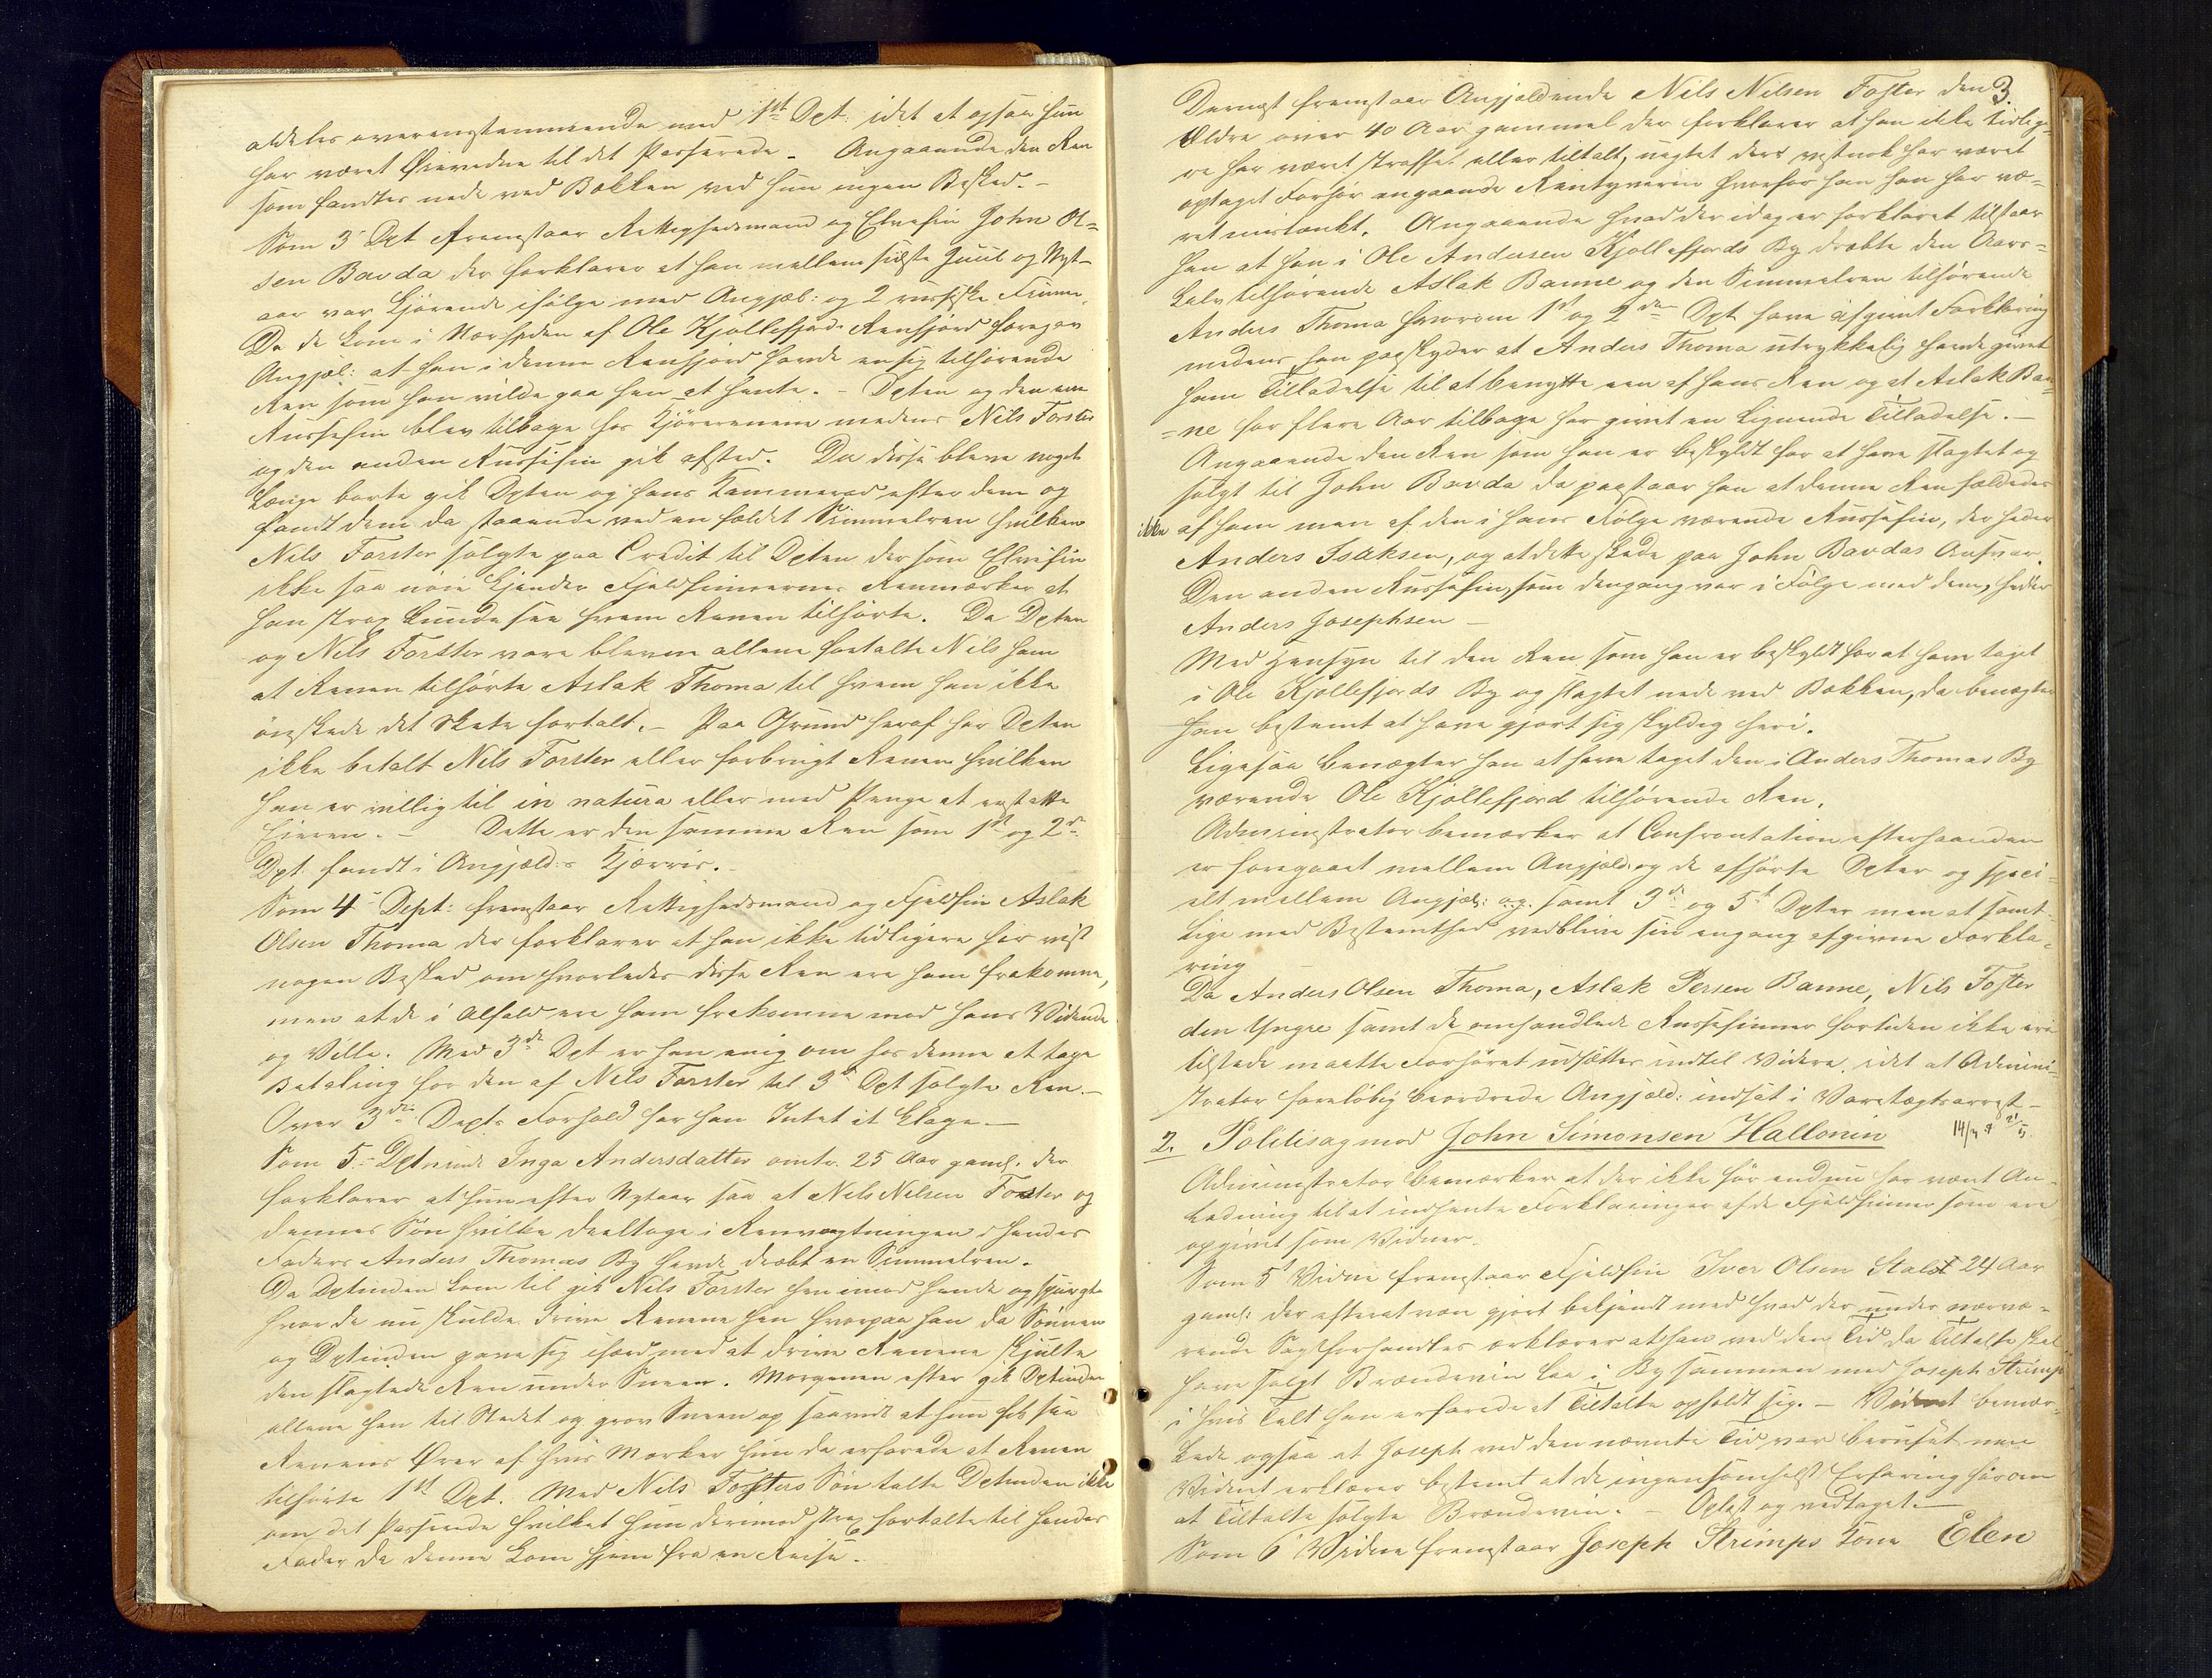 aldeles overensstemmende med 1st Dpt: idet at ogsaa hun
har været Øievidne til det Passerede. Angaaende den Ren
som fandtes nede ved Bækken ved hun ingen Besked. -
Som 3 Dpt fremstaar Rettighedsmand og Elvefin John Ol=
sen Bavda der forklarer at han mellem sidste Juul og Nyt-
aar var kjørende ifølge med Angjæl: og 2 russiske Finner.
Da de kom i Nærheden af Ole Kjøllefjords Renhjord foregav
Angjæl: at han i denne Renhjord havde en sig tilhørende
Ren som han vilde gaa hen at hente. - Dpten og den ene
Russefin blev tilbage hos Kjørerenene medens Nils Forster
og den anden Russefin gik afsted. Da disse bleve noget
længe borte gik Dpten og hans Kammerad efter dem og
fandt dem da staaende ved en fældet Simmelren hvilken
Nils Forster solgte paa Credit til Dpten der som Elvefin
ikke saa nøie kjender Fjeldfinnernes Renmærker at
han strax kunde see hvem Renen tilhørte. Da Dpten
og Nils Forster vare blevne allene fortalte Nils ham
at Renen tilhørte Aslak Thoma til hvem han ikke
ønskede det skete fortalt. - Paa Grund heraf har Dpten
ikke betalt Nils Forster eller forbrugt Renen hvilken
han er villig til in natura eller med Penge at erstatte
Eieren. - Dette er den samme Ren som 1st og 2den
Dpt. fandt i Angjæld:s Kjærris.
Som 4 Dept: fremstaar Rettighedsmand og Fjeldfin Aslak
Olsen Thoma der forklarer at han ikke tidligere har vidst
nogen Besked om hvorledes disse Ren ere ham frakomne,
men at de i Alfald ere ham frakomne mod hans Vidende
og Villie. Med 3de Dpt er han enig om hos denne at tage
Betaling for den af Nils Forster til 3d Dpt solgte Ren. -
Over 3die Depts Forhold har han Intet at klage. -
Som 5 Dptinde Inga Andersdatter omtr. 25 Aar gaml. der
forklarer at hun efter Nytaar saa at Nils Nilsen Forster og
dennes Søn hvilke deeltoge i Renvogtningen i hendes
Faders Anders Thomas By havde dræbt en Simmelren.
Da Dptinden kom til gik Nils Forster hen imod hende og spurgte
hvor de nu skulde drive Renene hen hvorpaa han da Sønnen
og Dptinden gave sig ifærd med at drive Renene skjulte
den slagtede Ren under Sneen. Morgenen efter gik Dptinden
allene hen til Stedet og grov Sneen op saavidt at hun fik see
Renens Ører af hvis Mærker hun da erfarede at Renen
tilhørte 1st Dpt. Med Nils Forsters Søn talte Dptinden ikke
om det Passerede hvilket hun derimod strax fortalte til hendes
Fader da denne kom hjem fra en Reise.
3.
Dernæst fremstaar Angjældende Nils Nilsen Foster den
Ældre over 40 Aar gammel der forklarer at han ikke tidlige-
re har været straffet eller tiltalt, uagtet der vistnok har været
optaget Forhør angaaende Rentyverie hvorfor han har væ=
ret mistænkt. Angaaende hvad der idag er forklaret tilstaar
han at han i Ole Andersen Kjøllefjords By dræbte den Aars=
kalv tilhørende Aslak Banne og den Simmelren tilhørende
Anders Thoma hvorom 1st og 2den Dpt have afgivet Forklaring
medens han paaskyder at Anders Thoma utrykkelig havde givet
ham Tilladelse til at benytte een af hans Ren og at Aslak Ban=
=ne for flere Aar tilbage har givet en lignende Tilladelse. -
Angaaende den Ren som han er beskyldt for at have slagtet og
solgt til John Bavda da paastaar han at denne Ren fældedes
ikke af ham men af den i hans Følge værende Russefin, der heder
Anders Isaksen, og at dette skede paa John Bavdas Ansvar.
Den anden Russefin, som dengang var i Følge med dem, heder
Anders Josephsen -
Med Hensyn til den Ren som han er beskyldt for at have taget
i Ole Kjøllefjords By og slagtet nede ved Bækken, da benægter
han bestemt at have gjort sig skyldig heri.
Ligesaa benægter han at have taget den i Anders Thomas By
værende Ole Kjøllefjord tilhørende Ren.
Administrator bemærker at Confrontation efterhaanden
er foregaaet mellem Angjæld. og de afhørte Dpter og speci-
elt mellem Angjæl: og samt 3de og 5t Dpter men at samt-
lige med Bestemthed vedblive sin engang afgivne Forkla-
ring
Da Anders Olsen Thoma, Aslak Persen Banne, Nils Foster
den Yngre samt de omhandlede Russefinner fortiden ikke ere
tilstede maatte Forhøret udsættes indtil Videre, idet at Admini-
strator foreløbig beordrede Angjæld: indsat i Varetægtsarrest -
2. Politisag mod John Simonsen Hallonin
Administrator bemærker at der ikke før endnu har været An-
ledning til at indhente Forklaringer af de Fjeldfinner som ere
opgivet som Vidner.
Som 5t Vidne fremstaar Fjeldfin Iver Olsen Stalst 24 Aar
gaml: der efterat være gjort bekjendt med hvad der under nærvæ-
rende Sag forhandles erklærer at han ved den Tid da Tiltalte skal
have solgt Brændeviin laa i By sammen med Joseph Strimp
i hvis Telt han erfarede at Tiltalte opholdt sig. - Vidnet bemær-
kede ogsaa at Joseph ved den nævnte Tid var beruset men
Vidnet erklærer bestemt at de ingensomhelst Erfaring har om
at Tiltalte solgte Brændeviin. - Oplæst og vedtaget. -
Som 6 Vidne fremstaar Joseph Strimps Kone Elen